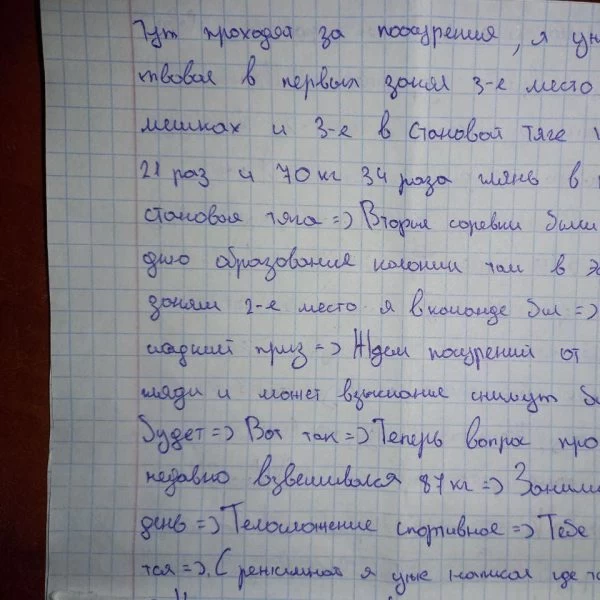 Тут проходят за поощрения, я уч
твовал в первых занял 3-е место
мешках и 3-е в становой тяге
21 раз и 70 кг 34 раза глянь в
становая тяга => Вторые соревки были
дню образования колонии там в э
заняли 2-е место я в команде был =>
сладший приз => Ждём поощрений от
гляди и может взыскание снимут
будет => Вот так => Теперь вопрос про
недавно взвешивался 87 кг => Занима
день => Телосложение спортивное => Тебе
тся =>. С режимной я уже написал где